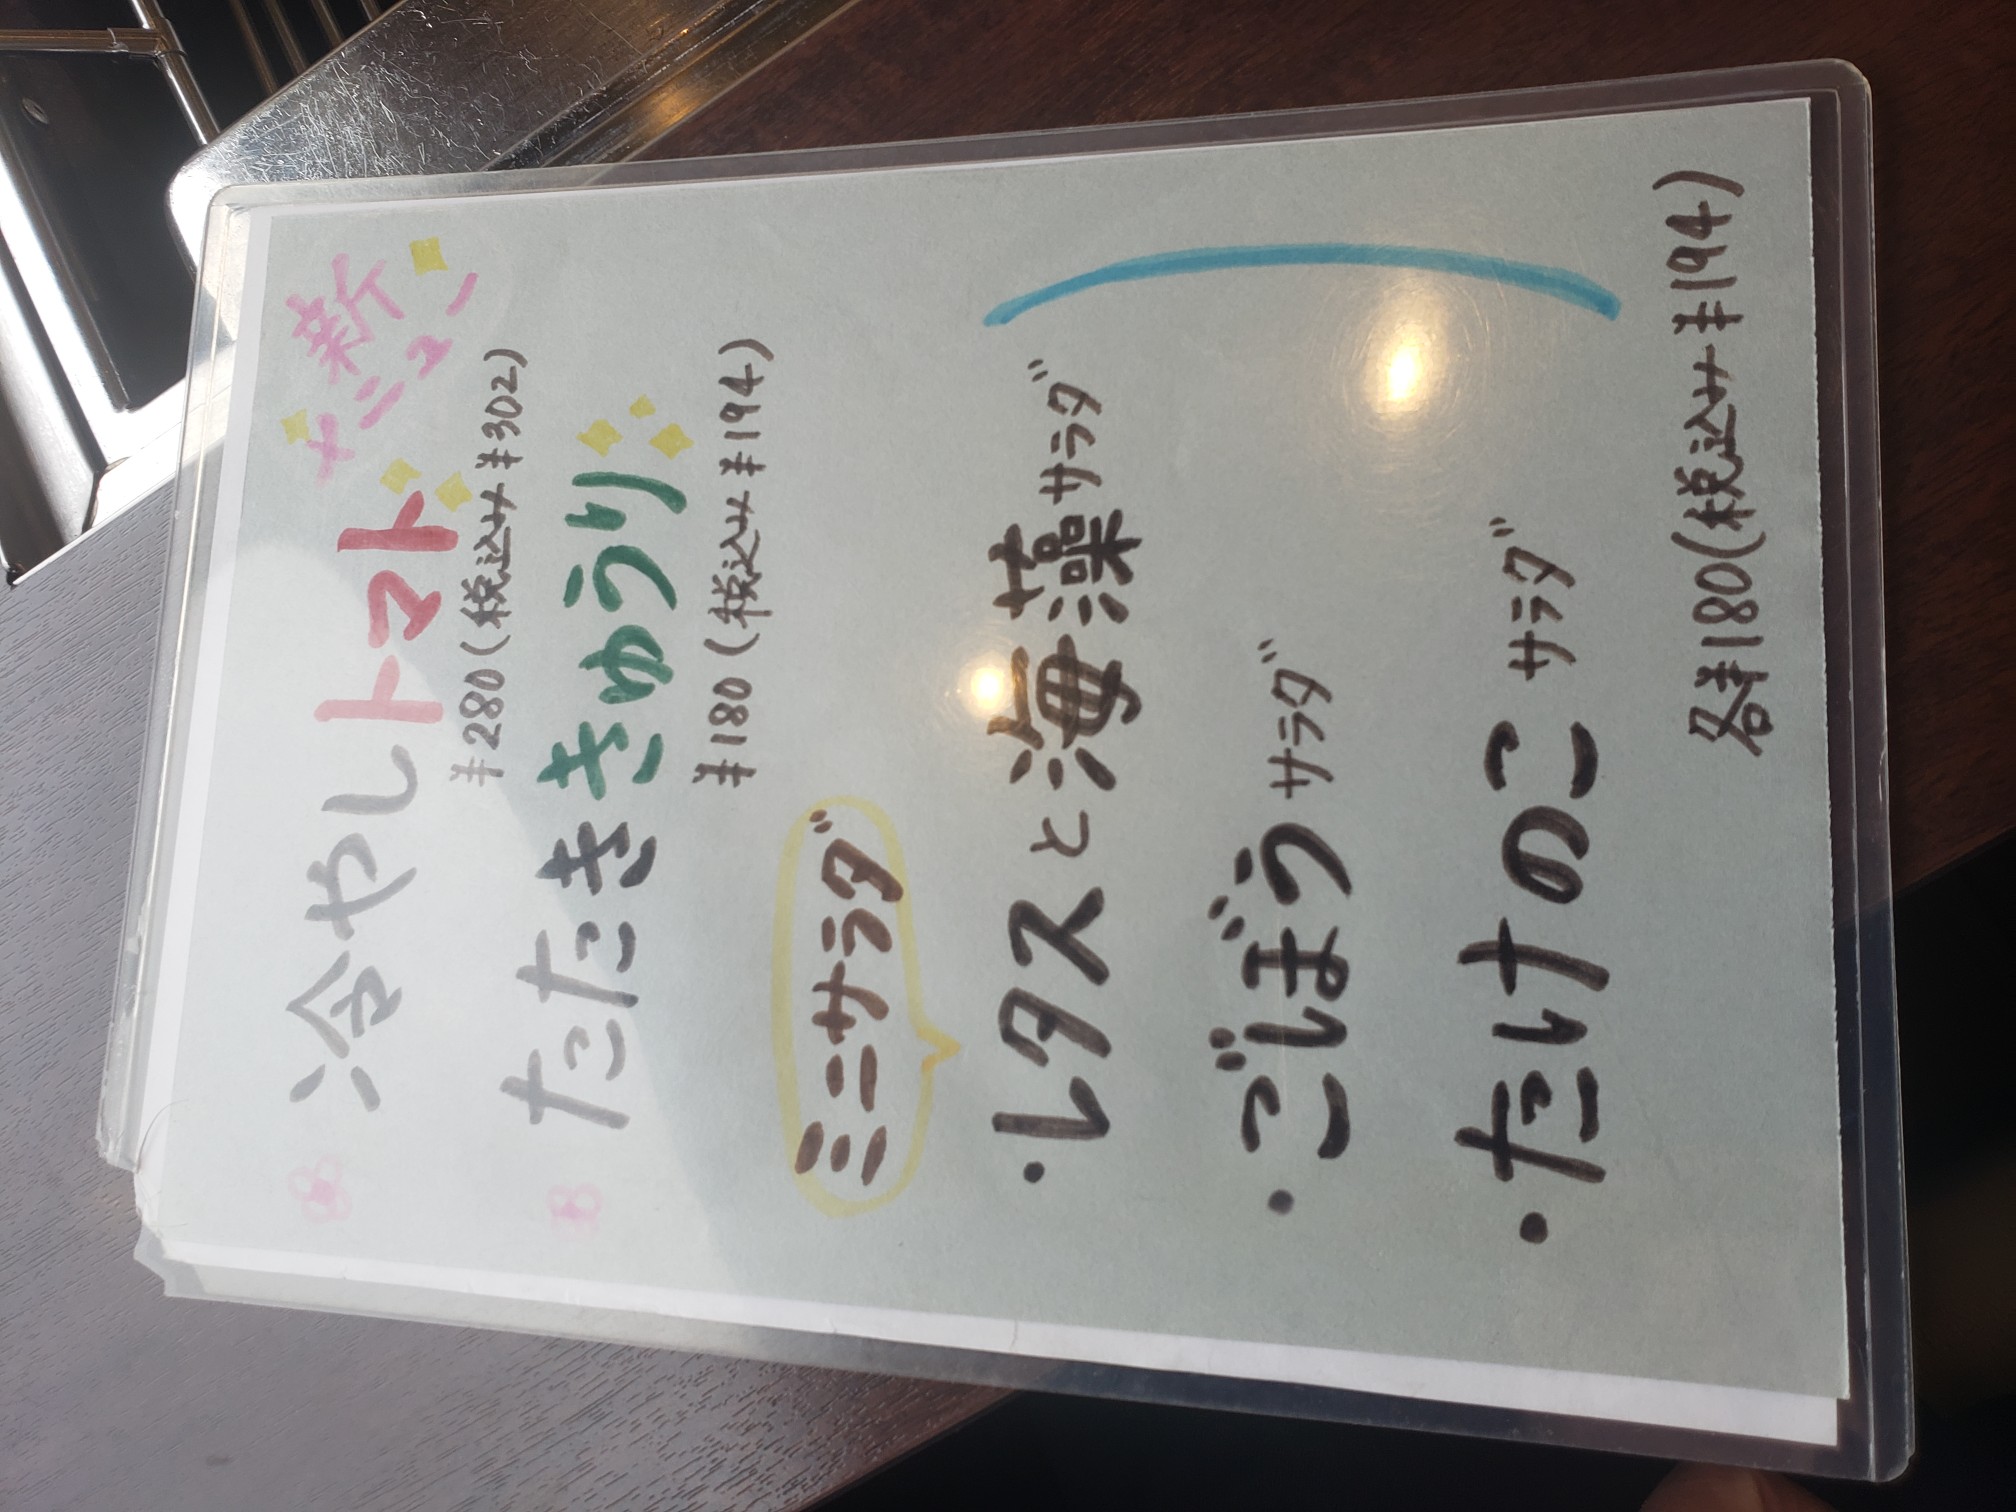 新
メニュー
冷やしトマト
¥280(税込み¥302)
たたききゅうり
¥180(税込み¥194)
ミニサラダ
・レタスと海藻サラダ
・ごぼうサラダ
・たけのこサラダ
各¥180(税込み¥194)